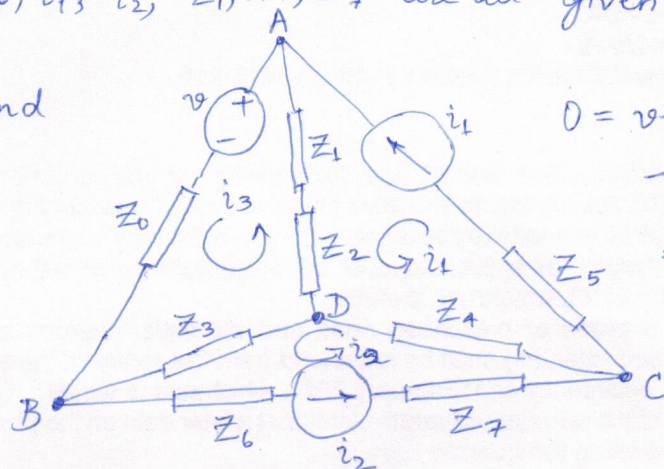 given
A
nd
v
+
-
i1
0 = v
Z1
Z0
i3
Z2
i1
Z5
D
Z3
Z4
i2
B
C
Z6
i2
Z7